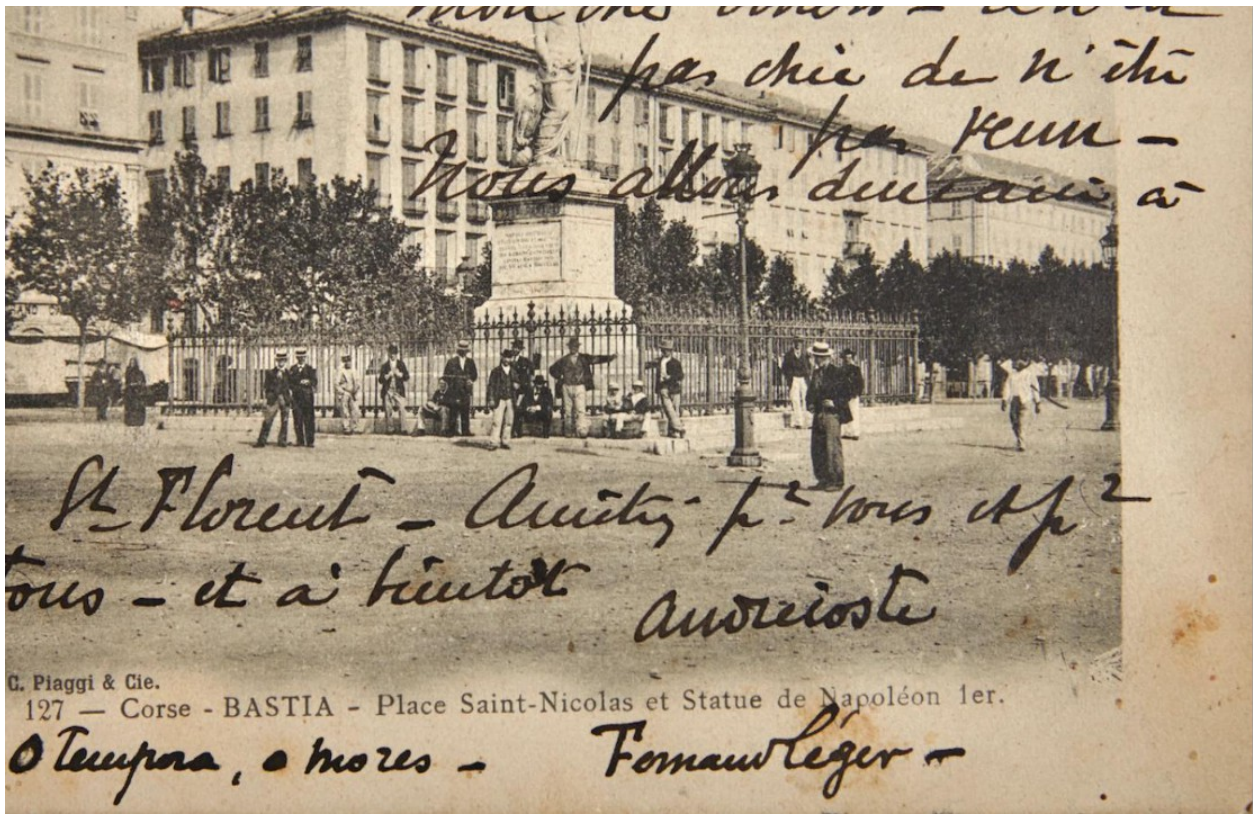 mon cher
pas chic de n'être
pas venu —
Nous allons demain à
St Florent — Amitiés pr vous et pr
tous — et à bientôt
C. Piaggi & Cie.
127 — Corse - BASTIA - Place Saint-Nicolas et Statue de Napoléon 1er.
O Tempora, o mores — Fernand Léger —